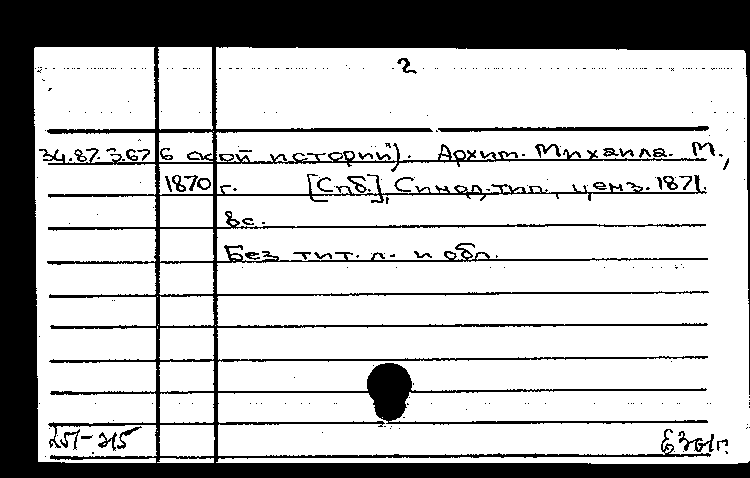 2
34.87.3.67 б ской истории"). Архим. Михаила. М.,
1870 г. [Спб.], Синод. тип., ценз. 1871.
8 с.
Без тит. л. и обл.
251-215